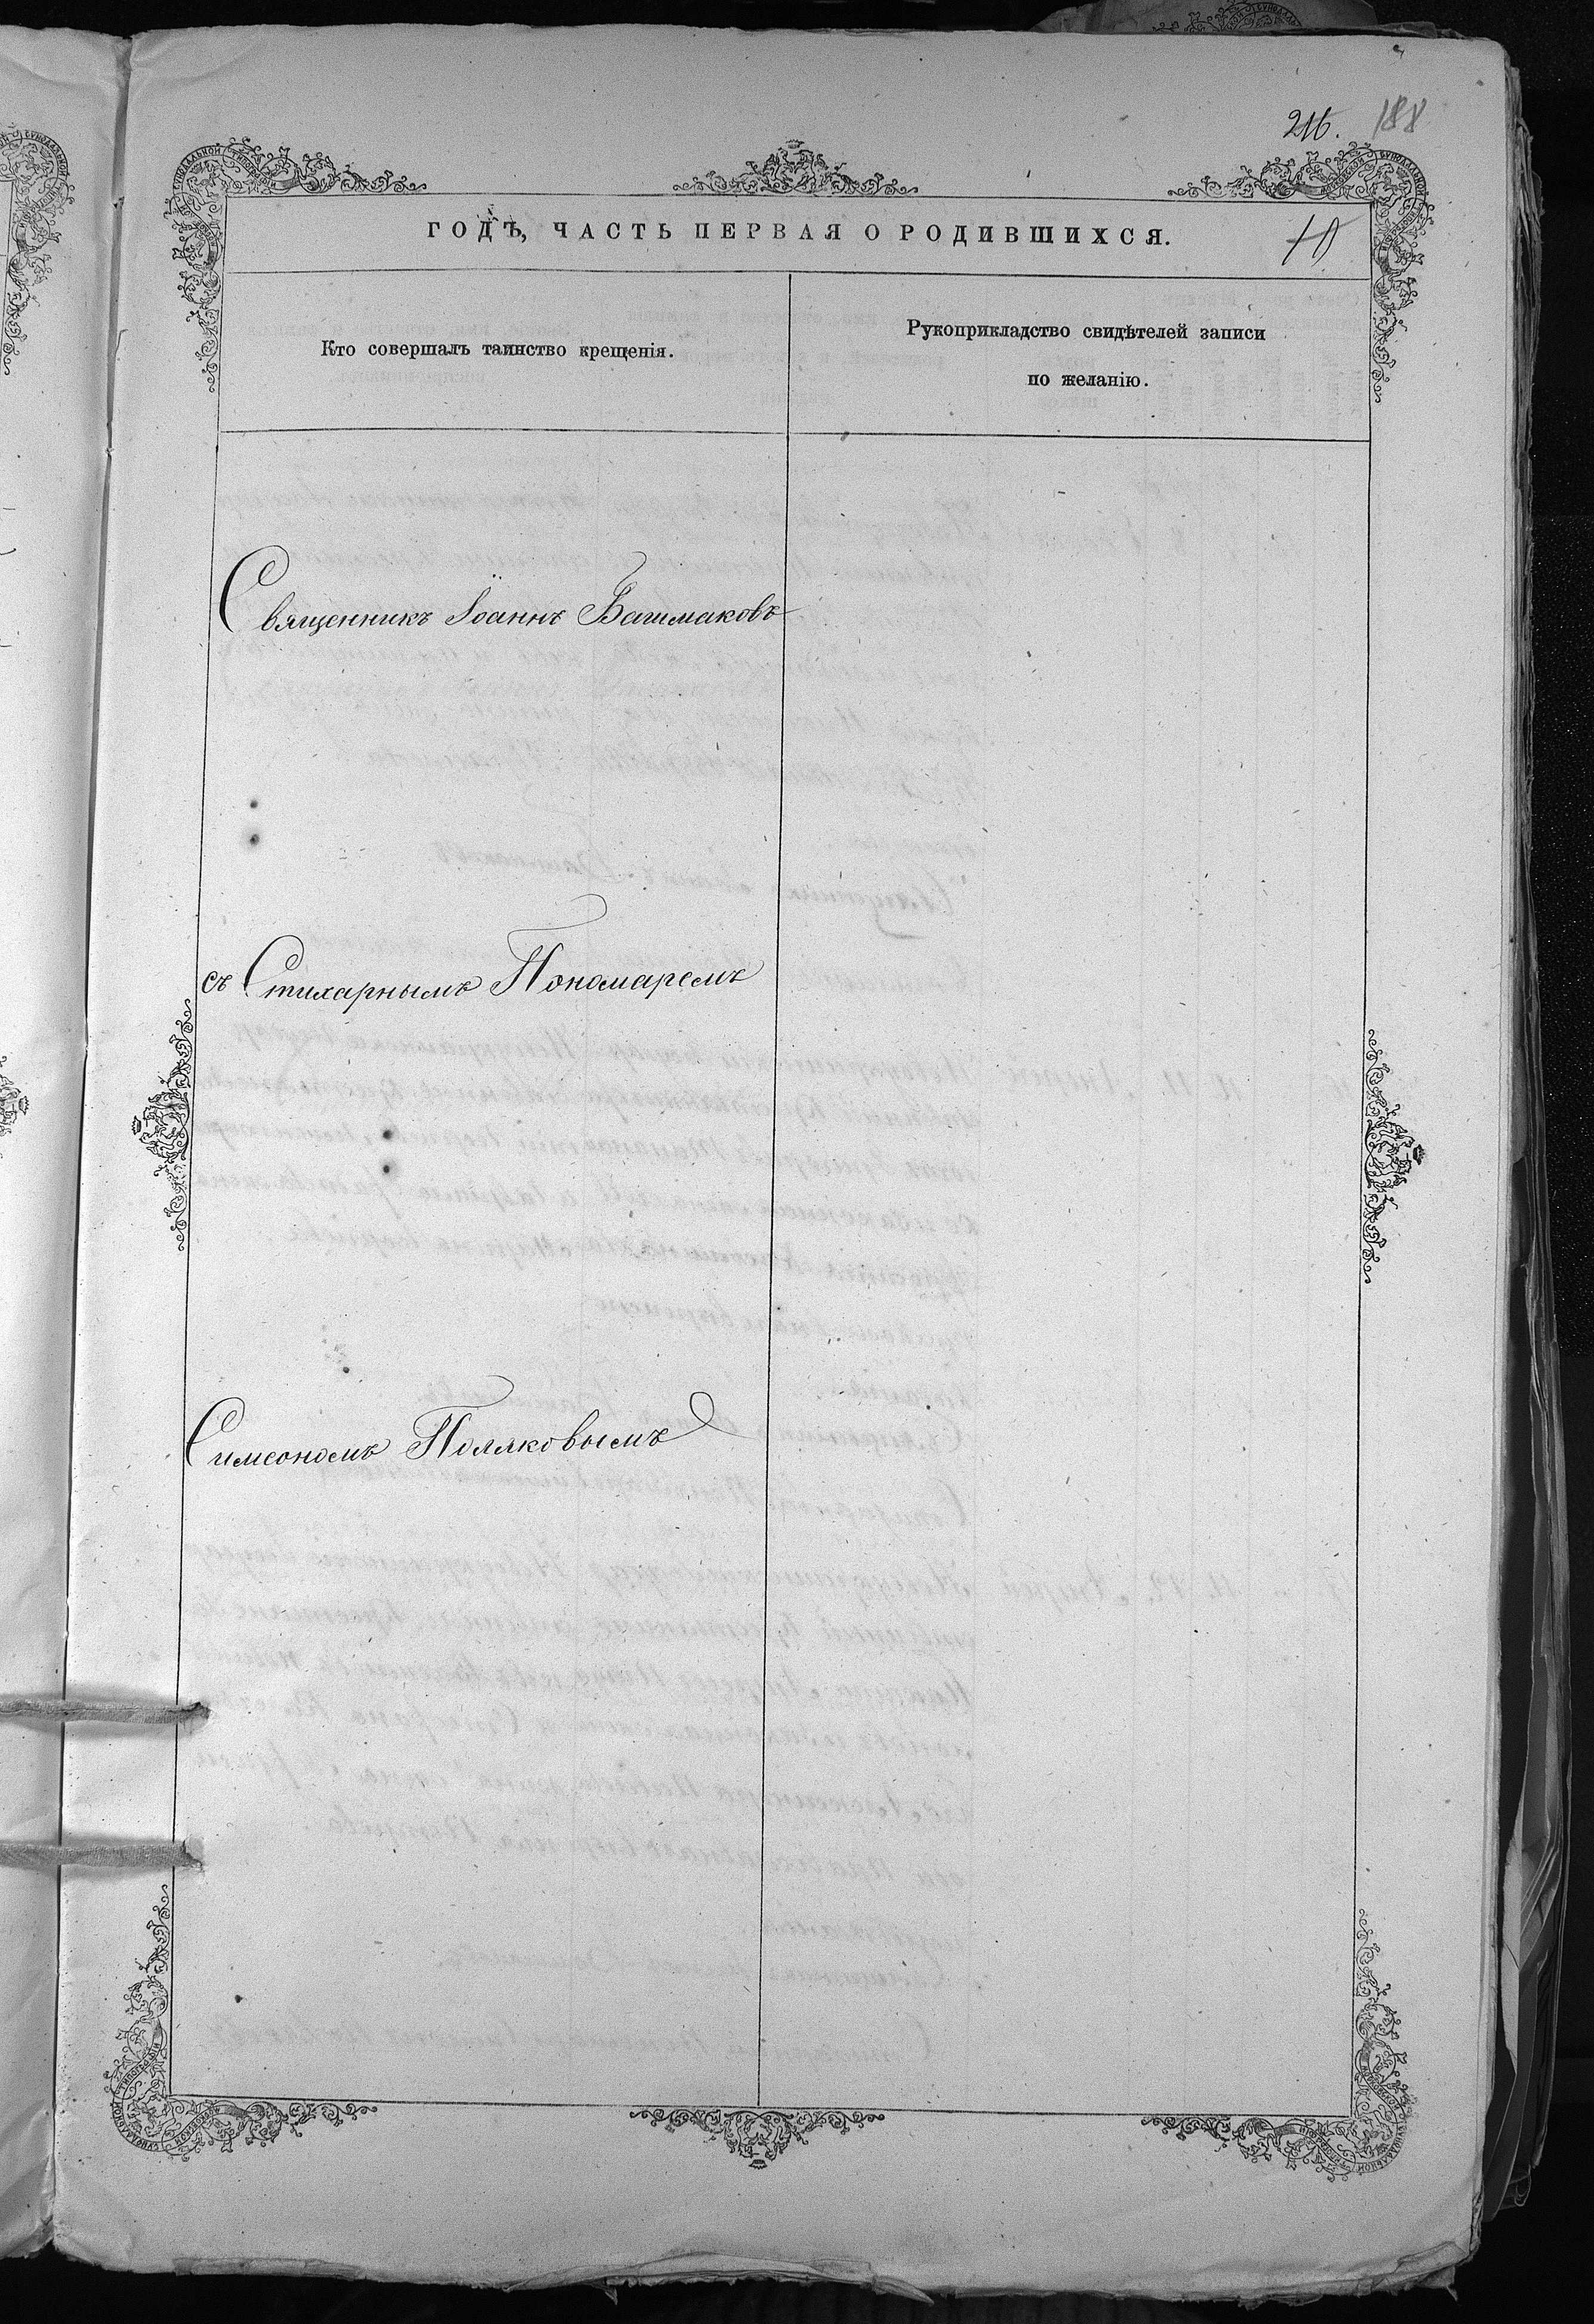 216. 188
ГОДЪ, ЧАСТЬ ПЕРВАЯ О РОДИВШИХСЯ.
10
Кто совершалъ таинство крещенія.
Рукоприкладство свидѣтелей записи
по желанію.
Священникъ Іоаннъ Башмаковъ
съ Стихарнымъ Пономаремъ
Симеономъ Поляковымъ